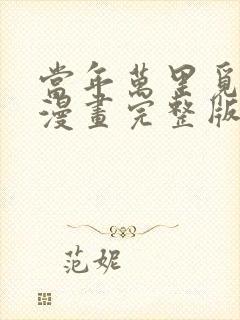 當年萬里覓
漫畫完整版
范妮